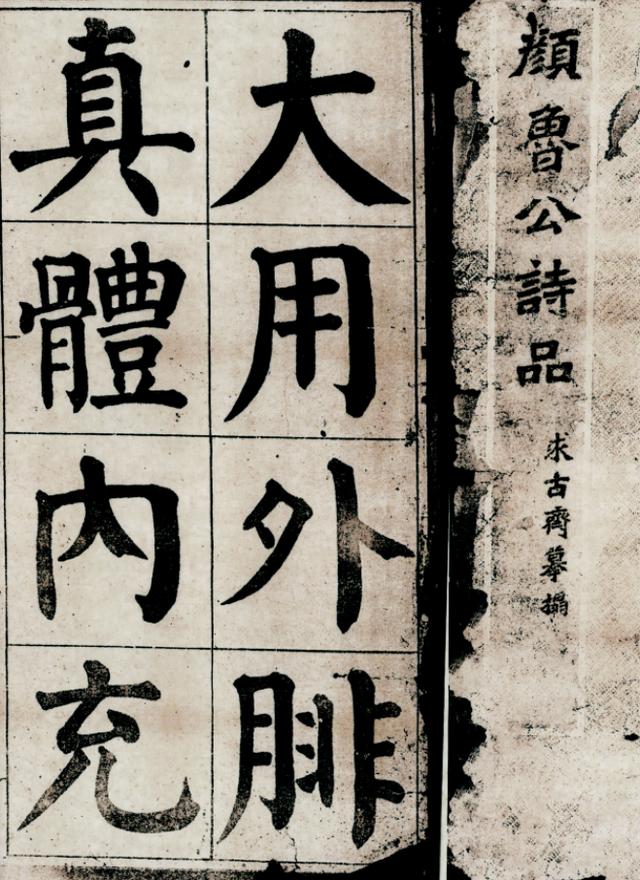 顏魯公詩品
求古齊摹搨
大用外腓
真體內充